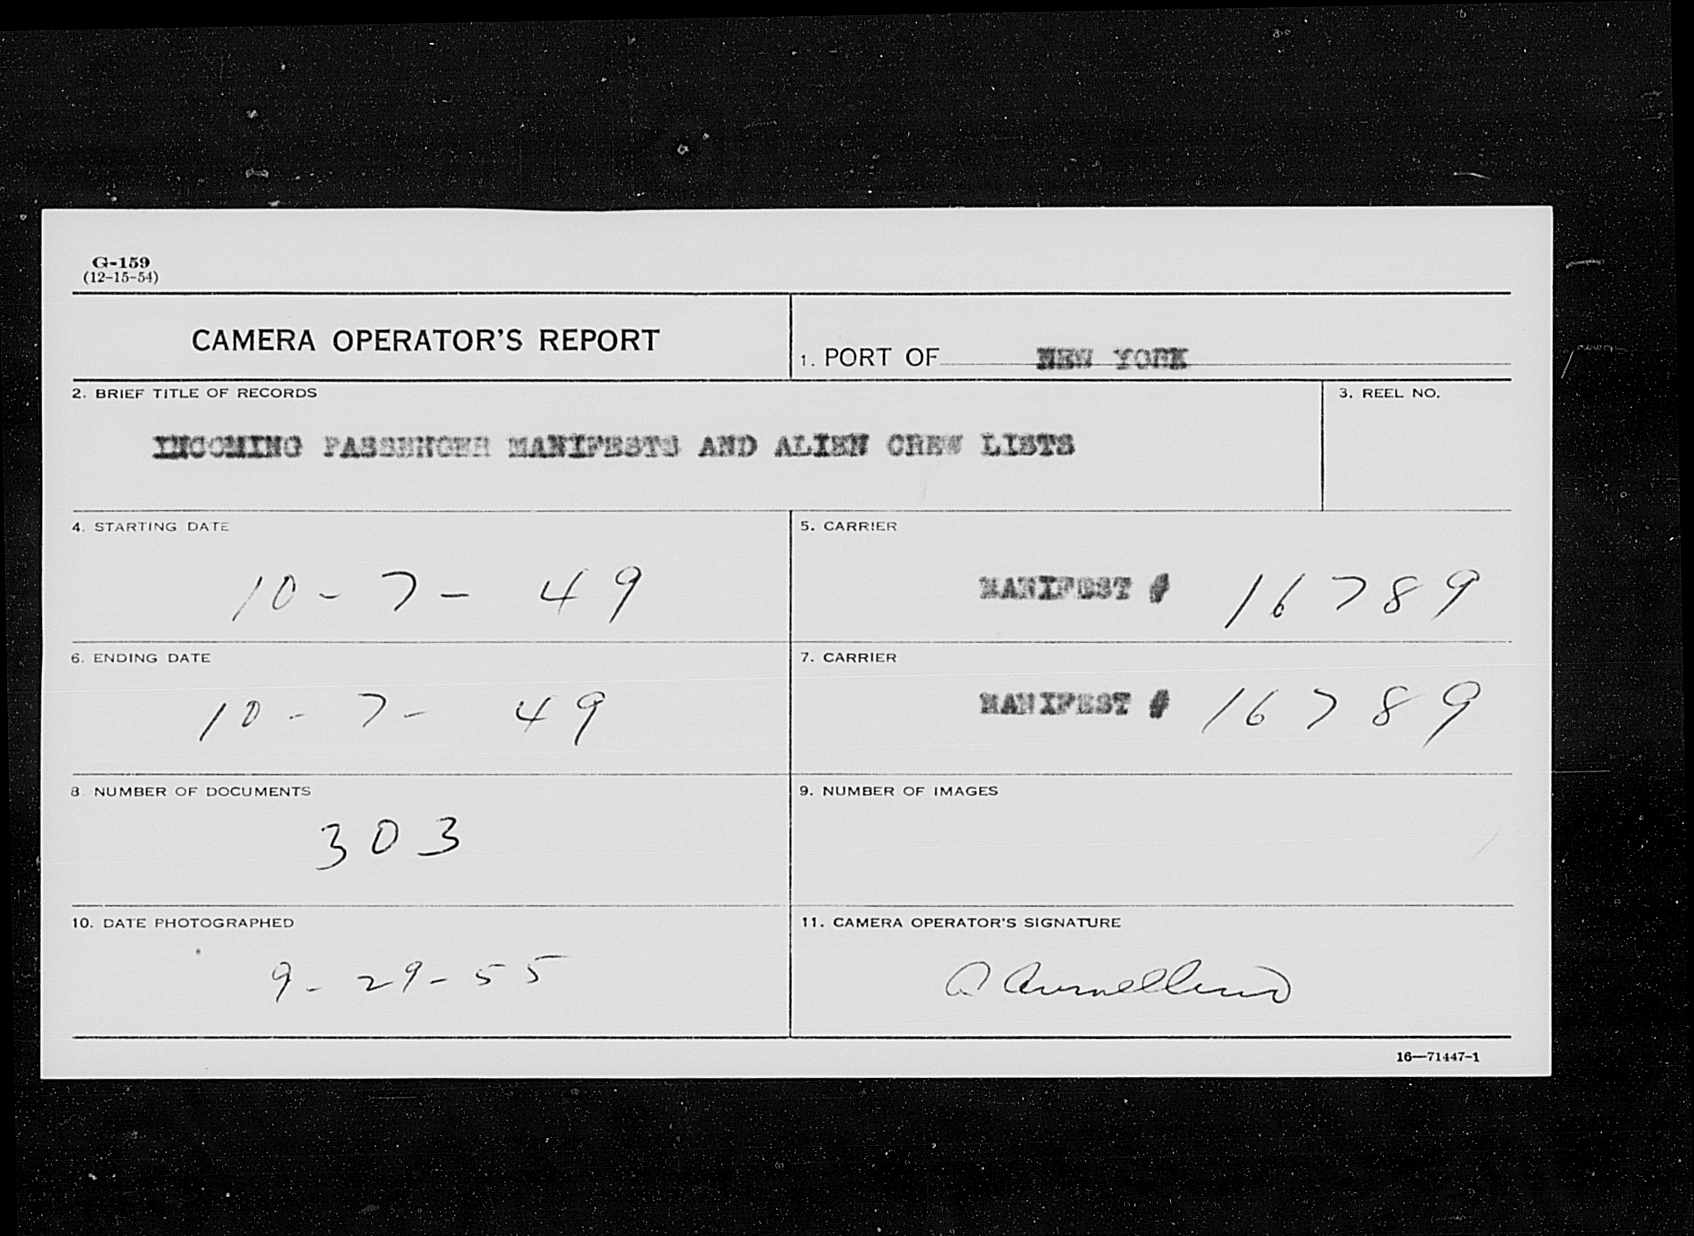 G-159
(12-15-54)
CAMERA OPERATOR'S REPORT
1. PORT OF NEW YORK
2. BRIEF TITLE OF RECORDS
3. REEL NO.
INCOMING PASSENGER MANIFESTS AND ALIEN CREW LISTS
4. STARTING DATE
5. CARRIER
10-7-49
MANIFEST # 16789
6. ENDING DATE
7. CARRIER
10-7-49
MANIFEST # 16789
8 NUMBER OF DOCUMENTS
9. NUMBER OF IMAGES
303
10. DATE PHOTOGRAPHED
11. CAMERA OPERATOR'S SIGNATURE
9-29-55
16—71447-1